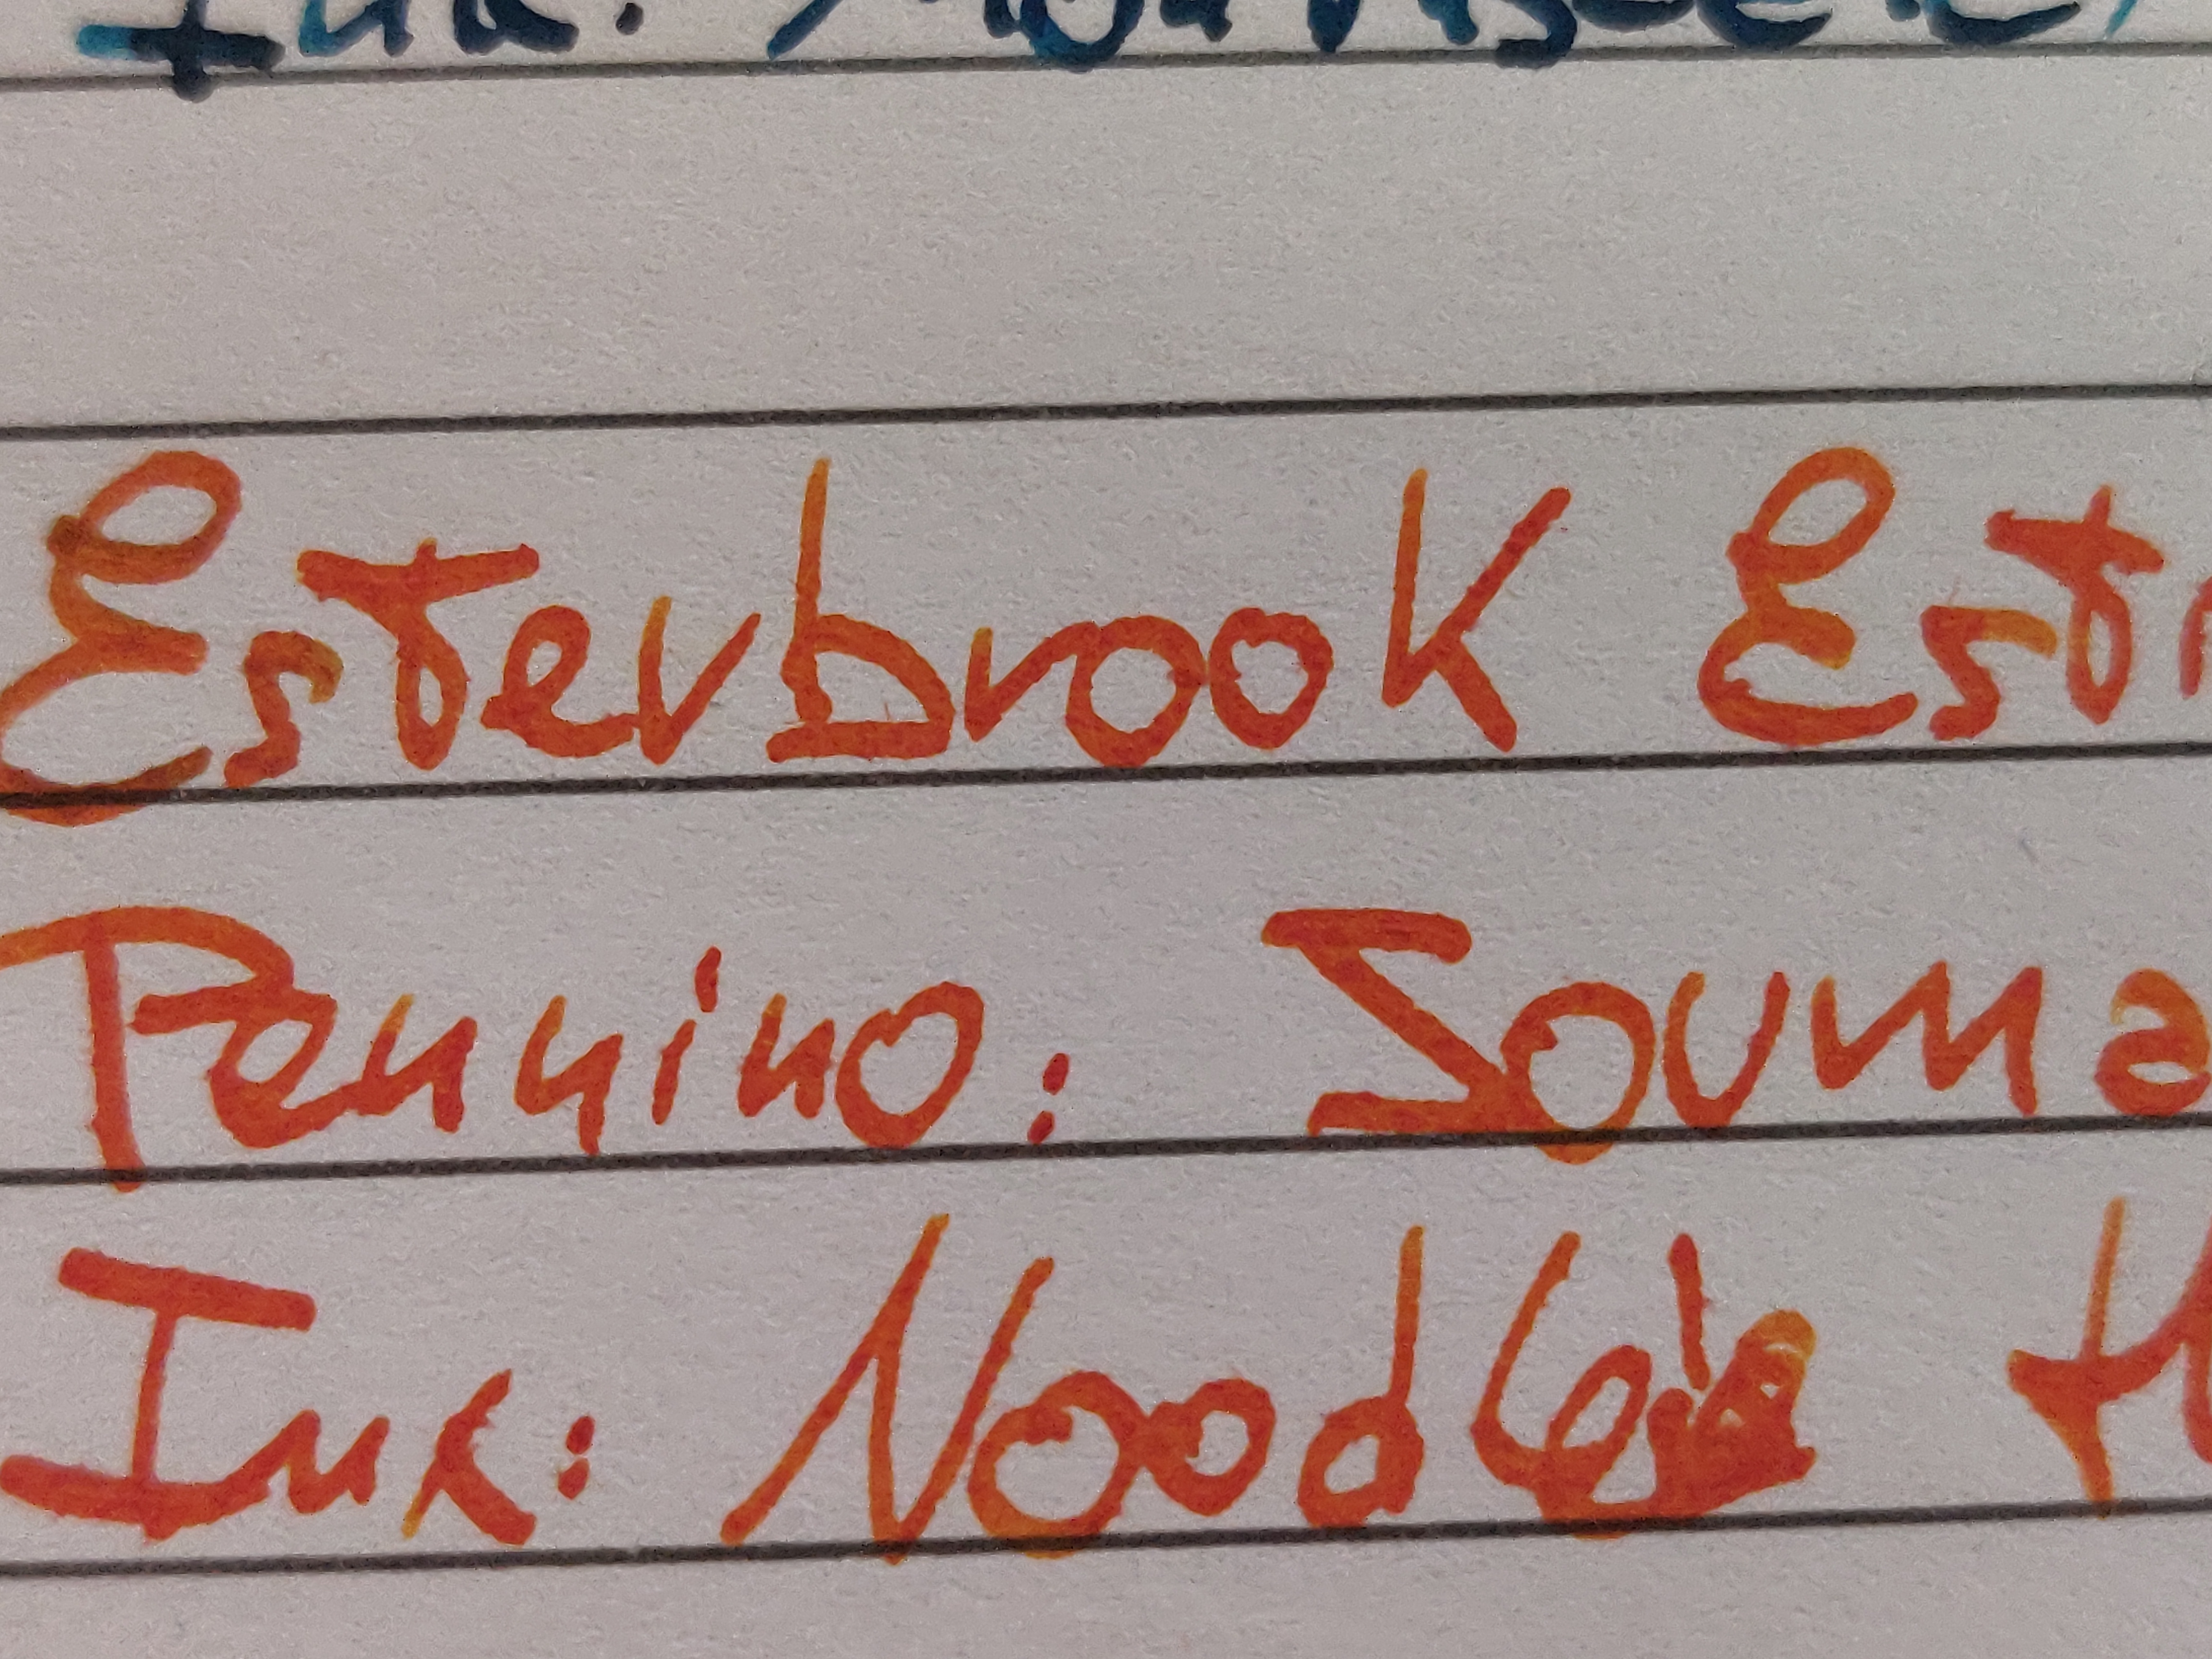 Ink:
Esterbrook Est
Pennino: Souma
Ink: Noodle's